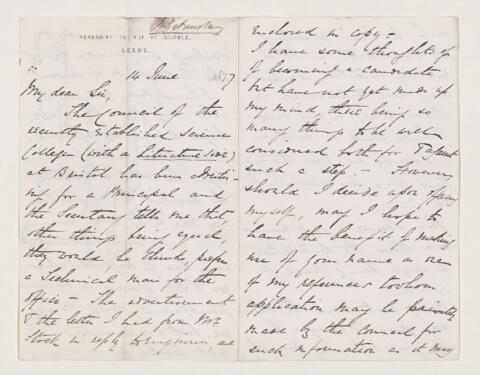 YORKSHIRE COLLEGE OF SCIENCE,
LEEDS.
14 June 1877
My dear Sir,
The Council of the
recently established Science
College (with a Literature side)
at Bristol has been advertis-
ing for a Principal and
the Secretary tells me that,
other things being equal,
they would, he thinks, prefer
a Technical man for the
office. – The advertisement
& the letter I had from Mr.
Stock in reply to enquiries, are
enclosed in copy –
I have some thoughts of
of becoming a candidate
but have not yet made up
my mind, there being so
many things to be well
considered both for & against
such a step. – However
should I decide upon offering
myself, may I hope to
have the benefit of making
use of your name as one
of my referees to whom
application may be privately
made by the Council for
such information as it may